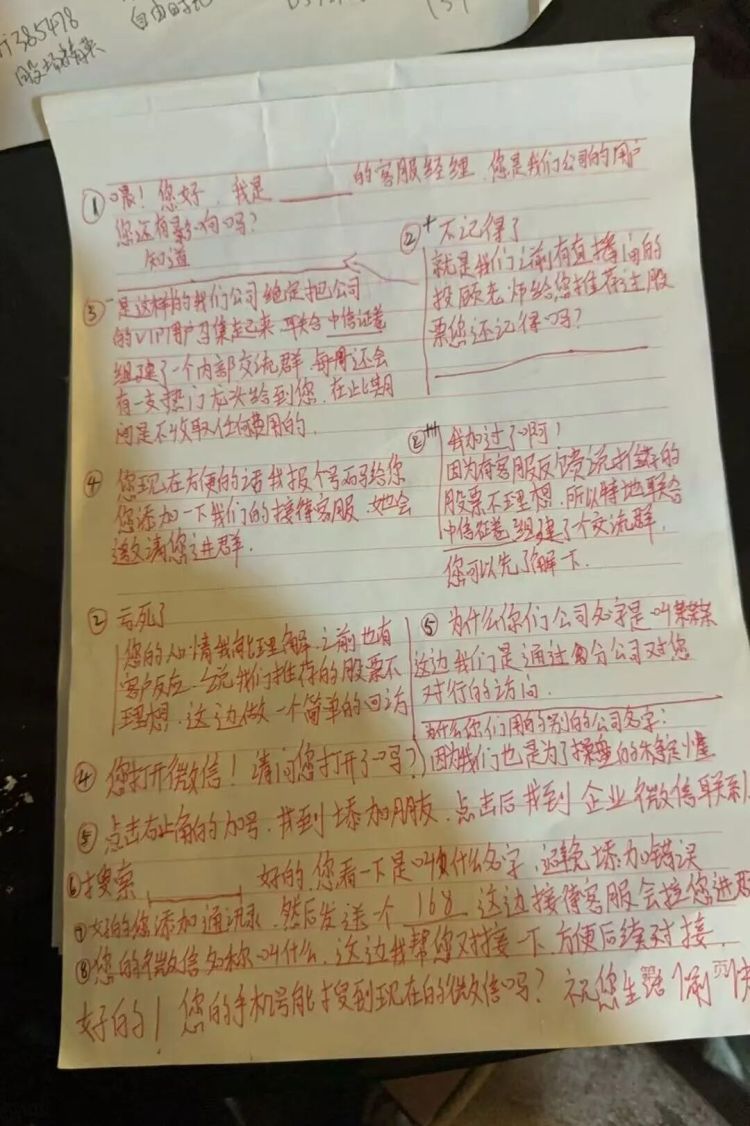 385478
自由时光
股场精英
① 喂！您好，我是______的客服经理，您是我们公司的用户
您还有影响吗？
知道
②+ 不记得了
就是我们之前有直播间的
投顾老师给您推荐过股
票您还记得吗？
③ 是这样的我们公司绝定把公司
的VIP用户召集起来，联合中信证卷
组建了一个内部交流群，每周还会
有一支热门龙头给到您，在此期
间是不收取任何费用的，
②++ 我加过了啊！
因为有客服反馈说推荐的
股票不理想，所以特地联合
中信证卷组建了个交流群，
您可以先了解一下．
④ 您现在方便的话我报个号码给您
您添加一下我们的接待客服，她会
邀请您进群．
② 亏死了
您的心情我能理解，之前也有
客户反应，说我们推荐的股票不
理想，这边做一个简单的回访
⑤ 为什么你们公司名字是叫某某某
这边我们是通过各分公司对您
对行的访问．
为什么你们用的别的公司名字：
因为我们也是为了操盘的
④ 您打开微信！请问您打开了吗？
⑤ 点击右上角的加号，找到添加朋友，点击后找到企业微信联系
⑥ 搜索______ 好的，您看一下是叫什么名字，避免添加错误
⑦ 好的您添加通讯录，然后发送一个 168 这边接待客服会拉您进群
⑧ 您的微信名称叫什么，这边我帮您对接一下，方便后续对接．
好的！您的手机号能搜到现在的微信吗？祝您生活